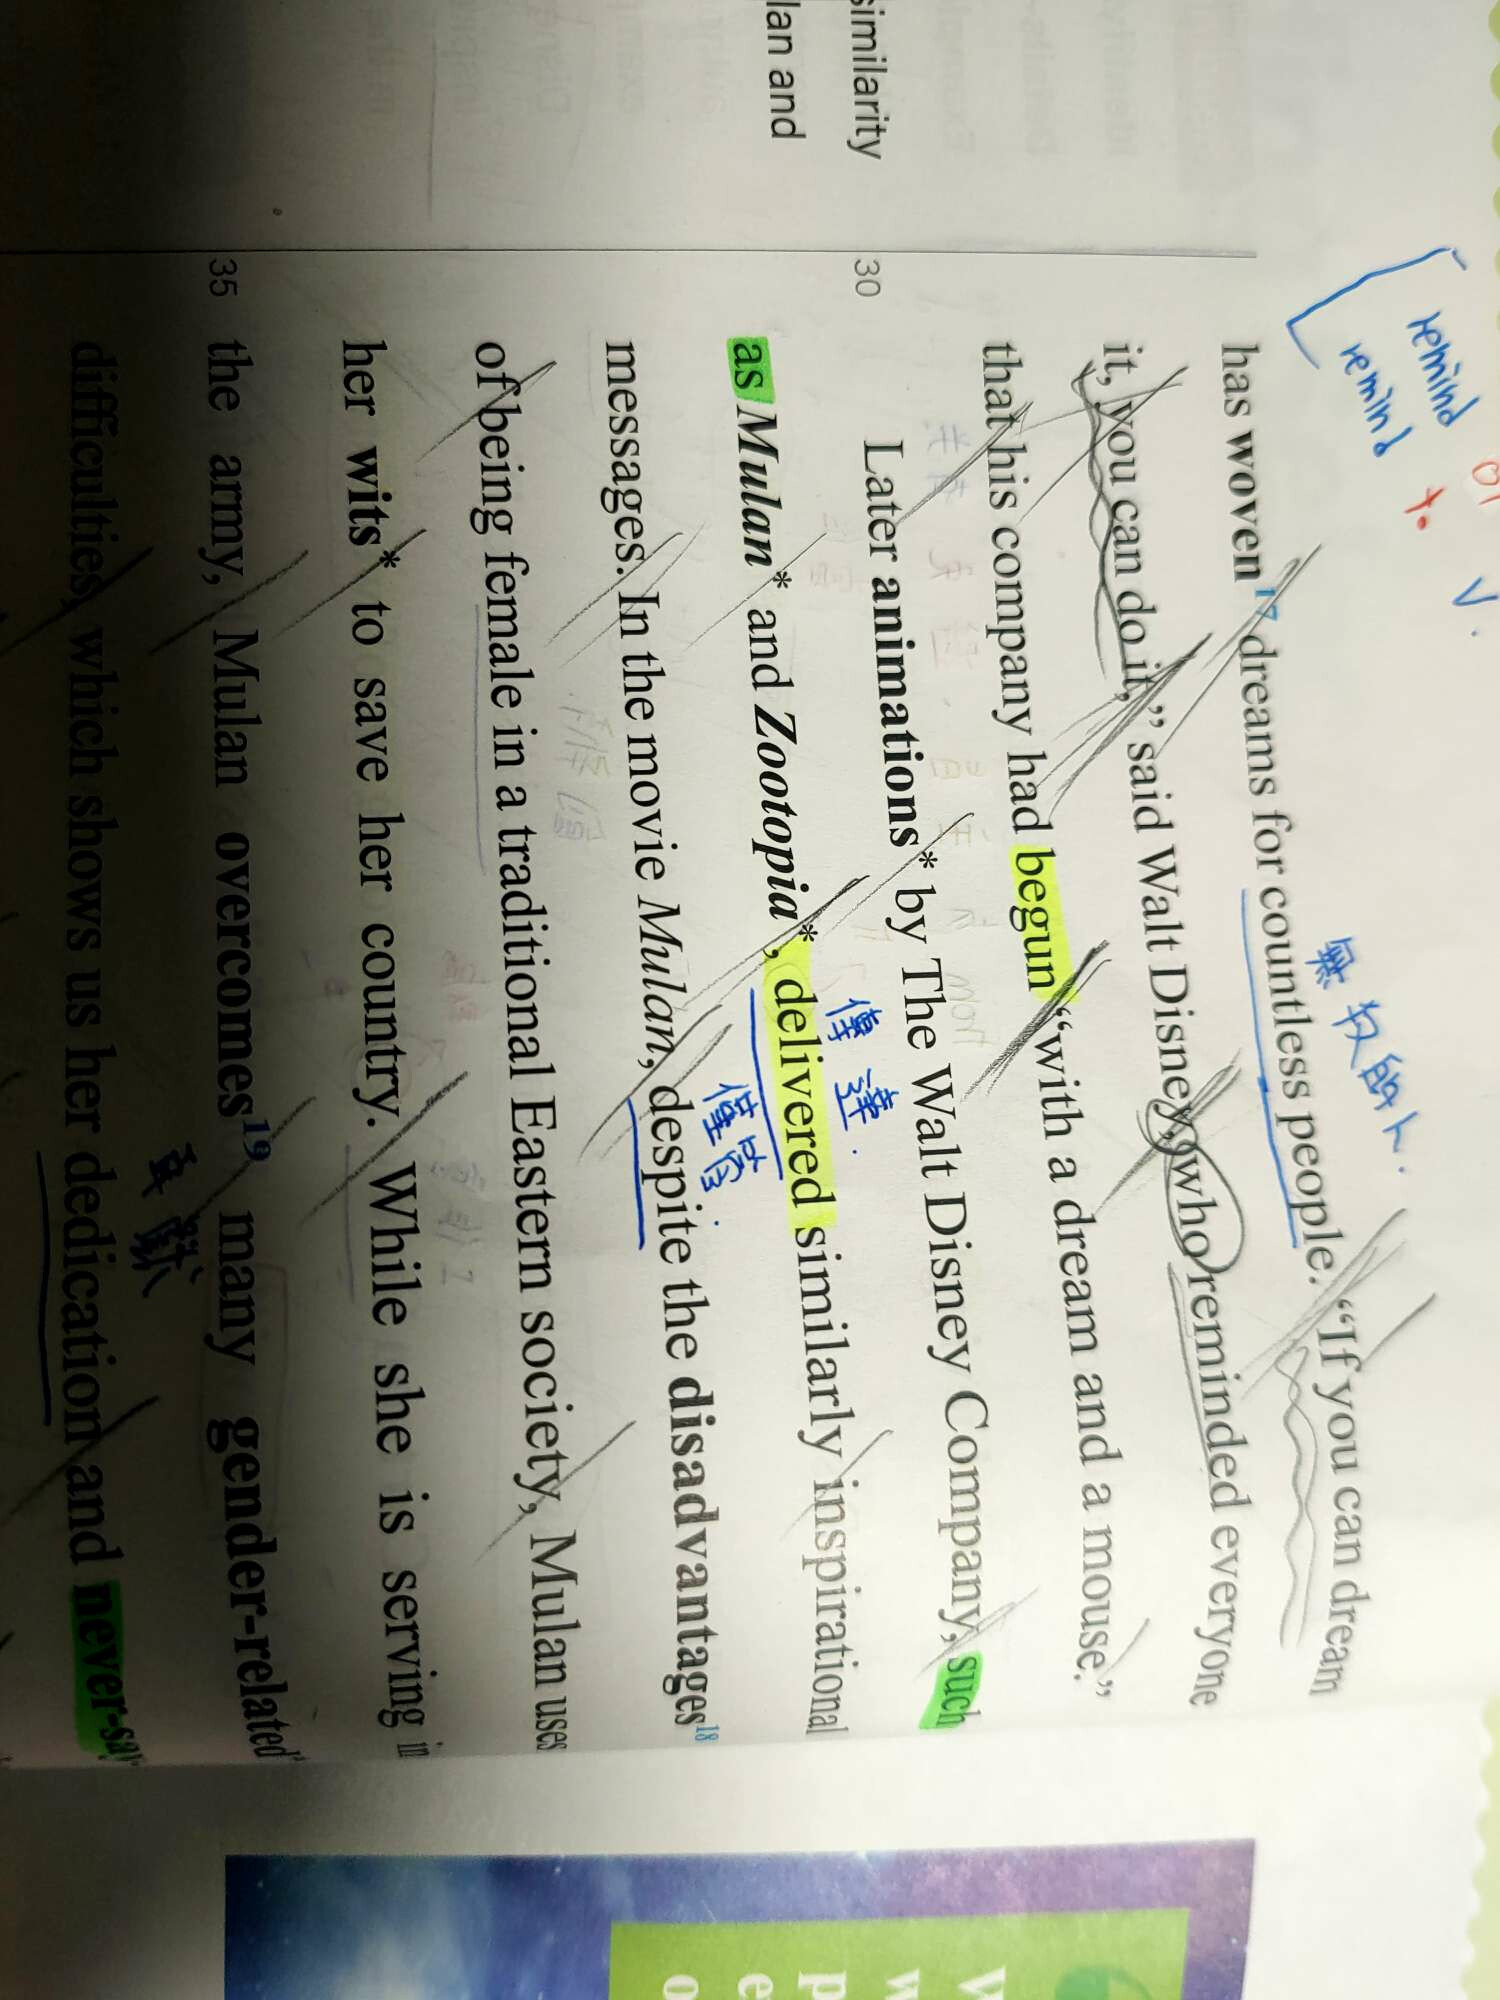 similarity
lan and
remind of
remind to V.
has woven¹⁷ dreams for countless people. “If you can dream
無數的人.
it, you can do it,” said Walt Disney, who reminded everyone
that his company had begun “with a dream and a mouse.”
30 Later animations* by The Walt Disney Company, such
傳達.
as Mulan* and Zootopia*, delivered similarly inspirational
儘管.
messages. In the movie Mulan, despite the disadvantages¹⁸
of being female in a traditional Eastern society, Mulan uses
her wits* to save her country. While she is serving in
35 the army, Mulan overcomes¹⁹ many gender-related
difficulties, which shows us her dedication and never-say
W
w
p
e
o